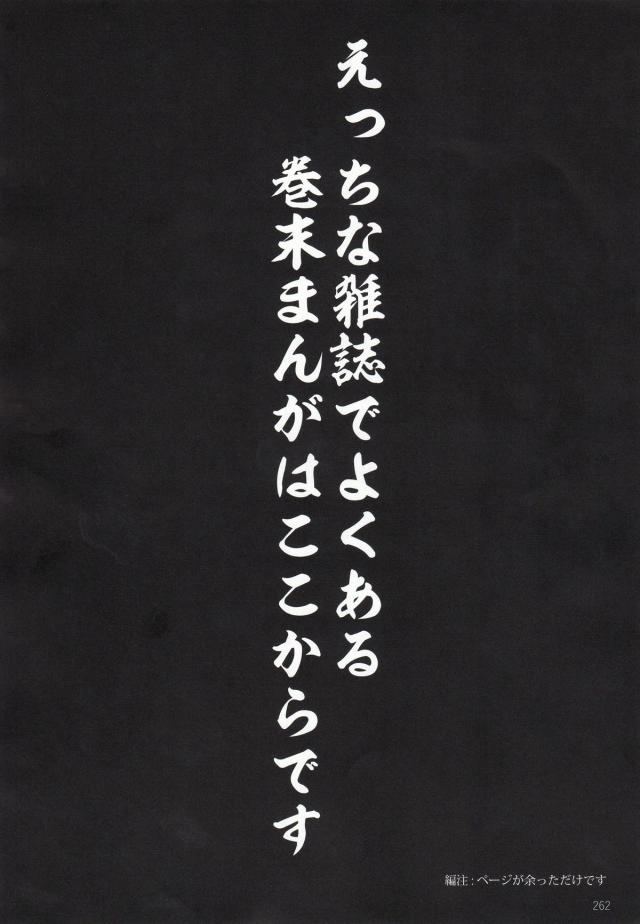 えっちな雑誌でよくある
巻末まんがはここからです
編注：ページが余っただけです
262